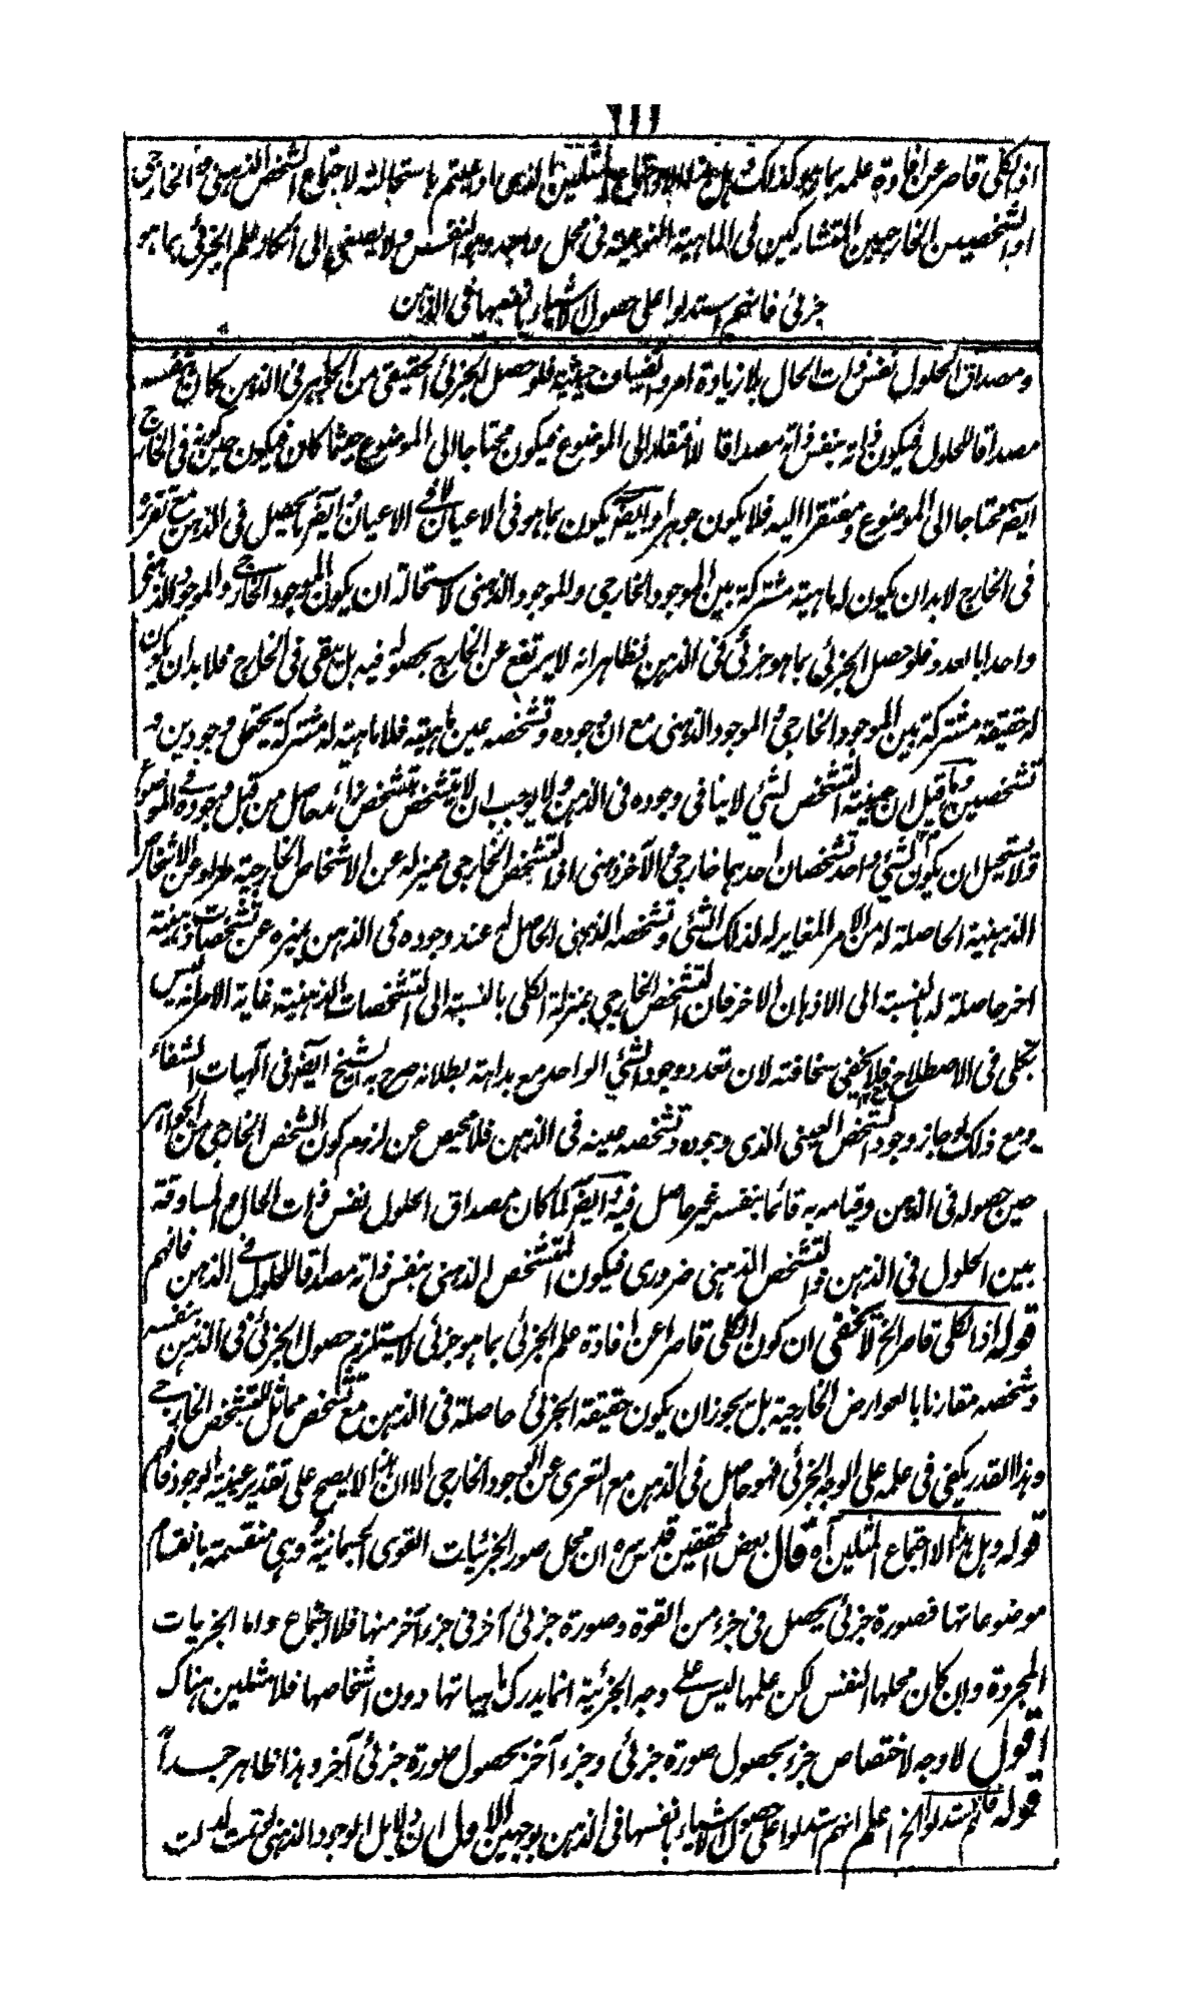 ١١٢
اذ الكلى قاصر عن افادة علمه بما هو كذلك وهل هذا الا اجتماع المثلين الذى ادعيتم باستحالته لاجتماع الشخص الذهنى مع الخارجى
او الشخصين الخارجيين المتشاركين فى الماهية النوعية فى محل واحد وهو النفس ولا يصغى الى انكار علم الجزئى بما هو
جزئى فانهم استدلوا على حصول الاشياء بانفسها فى الذهن
ومصداق الحلول نفس ذات الحال بلا زيادة امر وانضياف حيثية فلو حصل الجزئى الحقيقى من الجوهر فى الذهن كان بنفسه
مصداقا للحلول فيكون ذاته بنفس ذاته مصداقا لافتقاره الى الموضوع فيكون محتاجا الى الموضوع حيثما كان فيكون حين كونه فى الخارج
ايضا محتاجا الى الموضوع ومفتقرا اليه فلا يكون جوهرا وايضا يكون بما هو فى الاعيان لا فى الاعيان وايضا ما يحصل فى الذهن مع تقرره
فى الخارج لابد ان يكون له ماهية مشتركة بين الموجود الخارجى والموجود الذهنى لاستحالة ان يكون الموجود الخارجى والموجود الذهنى
واحدا بالعدد فلو حصل الجزئى بما هو جزئى فى الذهن فظاهر انه لا يرتفع عن الخارج بحصوله فيه بل يبقى فى الخارج فلابد ان يكون
له حقيقة مشتركة بين الموجود الخارجى والموجود الذهنى مع ان وجوده وتشخصه عين ماهيته فلا ماهية له مشتركة يحتمل وجودين و
تشخصين وما قيل ان عينية التشخص لشئ لا ينافى وجوده فى الذهن ولا يوجب ان لا يتشخص بتشخص زائد حاصل من قبل وجوده فى الموضوع
ولا يستحيل ان يكون لشئ واحد تشخصان احدهما خارجى والآخر ذهنى اذ التشخص الخارجى مميز له عن الاشخاص الخارجية طرا وعن الاشخاص
الذهنية الحاصلة له من الامر المغاير له لذلك الشئ وتشخصه الذهنى الحاصل له عند وجوده فى الذهن يميزه عن تشخصات ذهنية
اخر حاصلة له بالنسبة الى الاذهان الاخر فان التشخص الخارجى بمنزلة الكلى بالنسبة الى التشخصات الذهنية غاية الامر انه ليس
بكلى فى الاصطلاح فلا يخفى سخافته لان تعدد وجود الشئ الواحد مع بداهة بطلانه صرح به الشيخ ايضا فى الهيات الشفاء
ومع ذلك لو جاز وجود الشخص العينى الذى وجوده وتشخصه عينه فى الذهن فلا محيص عن لزوم كون الشخص الخارجى من الجواهر
حين حصوله فى الذهن وقيامه به قائما بنفسه غير حاصل فيه وايضا لما كان مصداق الحلول نفس ذات الحال والمساوقة
بين الحلول فى الذهن والتشخص الذهنى ضرورى فيكون المتشخص الذهنى بنفس ذاته مصداقا للحلول فى الذهن فافهم
قوله اذ الكلى قاصر الخ لا يخفى ان كون الكلى قاصرا عن افادة علم الجزئى بما هو جزئى لا يستلزم حصول الجزئى فى الذهن بنفسه
وشخصه مقارنا بالعوارض الخارجية بل يجوز ان يكون حقيقة الجزئى حاصلة فى الذهن مع تشخص مماثل للتشخص الخارجى
وهذا القدر يكفى فى علمه على الوجه الجزئى فهو حاصل فى الذهن مع التعرى عن الوجود الخارجى الا ان هذا لا يصح على تقدير عينية الوجود فافهم
قوله وهل هذا الا اجتماع المثلين آه قال بعض المحققين قدس سره ان محل صور الجزئيات القوى الجسمانية وهى منقسمة بانقسام
موضوعاتها فصورة جزئى يحصل فى جزء من القوة وصورة جزئى آخر فى جزء آخر منها فلا اجتماع واما الجزئيات
المجردة وان كان محلها النفس لكن علمها ليس على وجه الجزئية انما يدرك ماهياتها دون اشخاصها فلا مثلين هناك
اقول لا وجه لاختصاص جزء بحصول صورة جزئى وجزء آخر بحصول صورة جزئى آخر وهذا ظاهر جدا
قوله فانهم استدلوا الخ اعلم انهم استدلوا على حصول الاشياء بانفسها فى الذهن بوجهين الاول ان دلايل الوجود الذهنى لو تمت لدلت